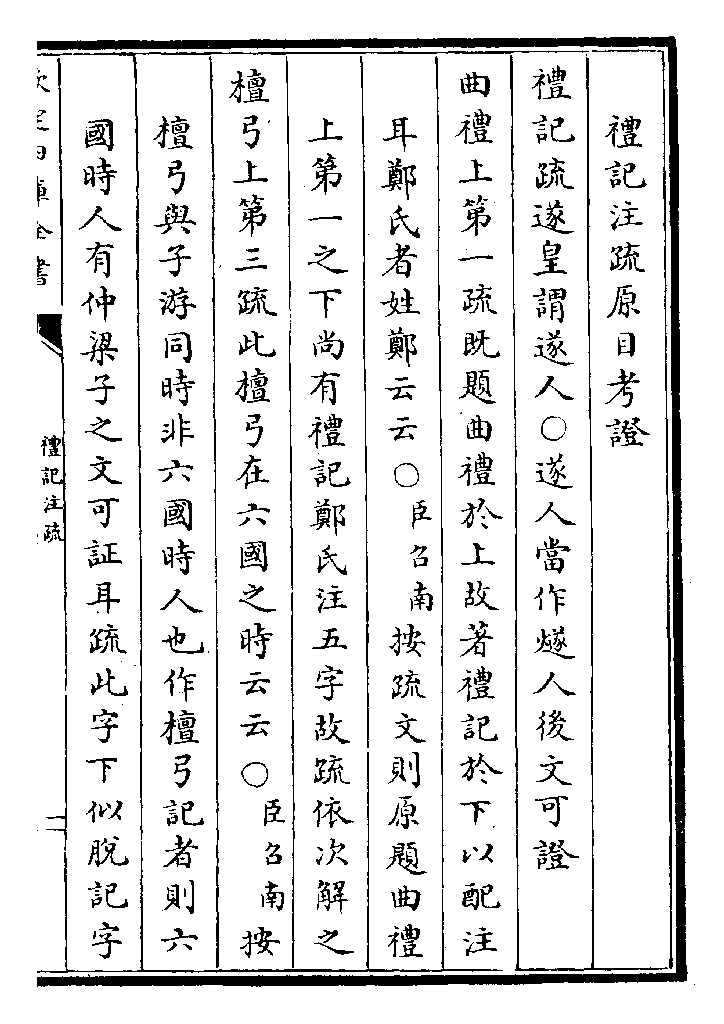 禮記注疏原目考證
禮記疏遂皇謂遂人○遂人當作燧人後文可證
曲禮上第一疏既題曲禮於上故著禮記於下以配注
耳鄭氏者姓鄭云云○臣召南按疏文則原題曲禮
上第一之下尚有禮記鄭氏注五字故疏依次解之
檀弓上第三疏此檀弓在六國之時云云○臣召南按
檀弓與子游同時非六國時人也作檀弓記者則六
國時人有仲梁子之文可証耳疏此字下似脫記字
欽定四庫全書
禮記注疏
一